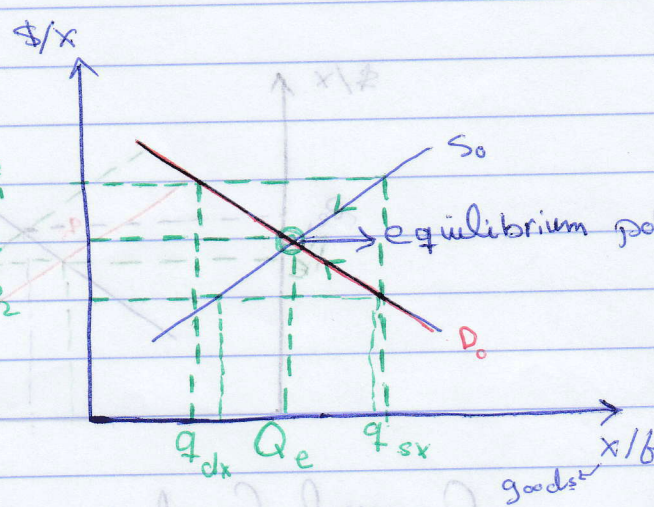 $/x
S₀
equilibrium po
2
D₀
q dx Q e q sx
x/
goods